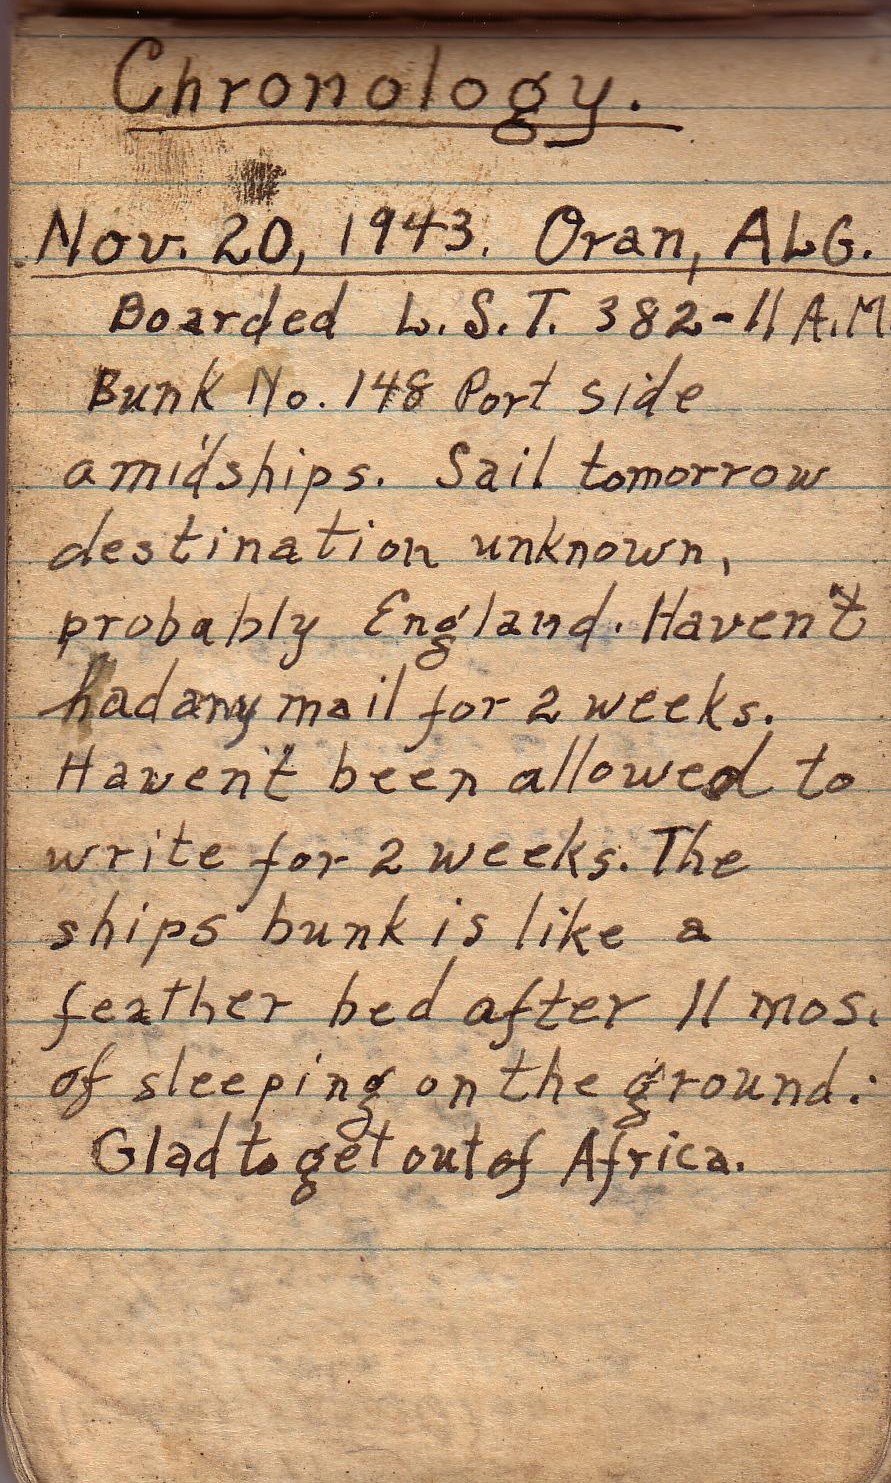 Chronology.
Nov. 20, 1943. Oran, ALG.
Boarded L.S.T. 382-11 A.M
Bunk No. 148 Port side
amidships. Sail tomorrow
destination unknown,
probably England. Haven't
had any mail for 2 weeks.
Haven't been allowed to
write for 2 weeks. The
ships bunk is like a
feather bed after 11 mos.
of sleeping on the ground.
Glad to get out of Africa.